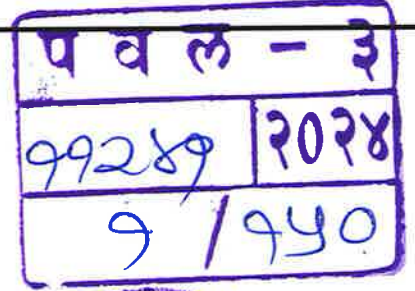 प व ल - ३
११२४१ २०२४
१ / १५०